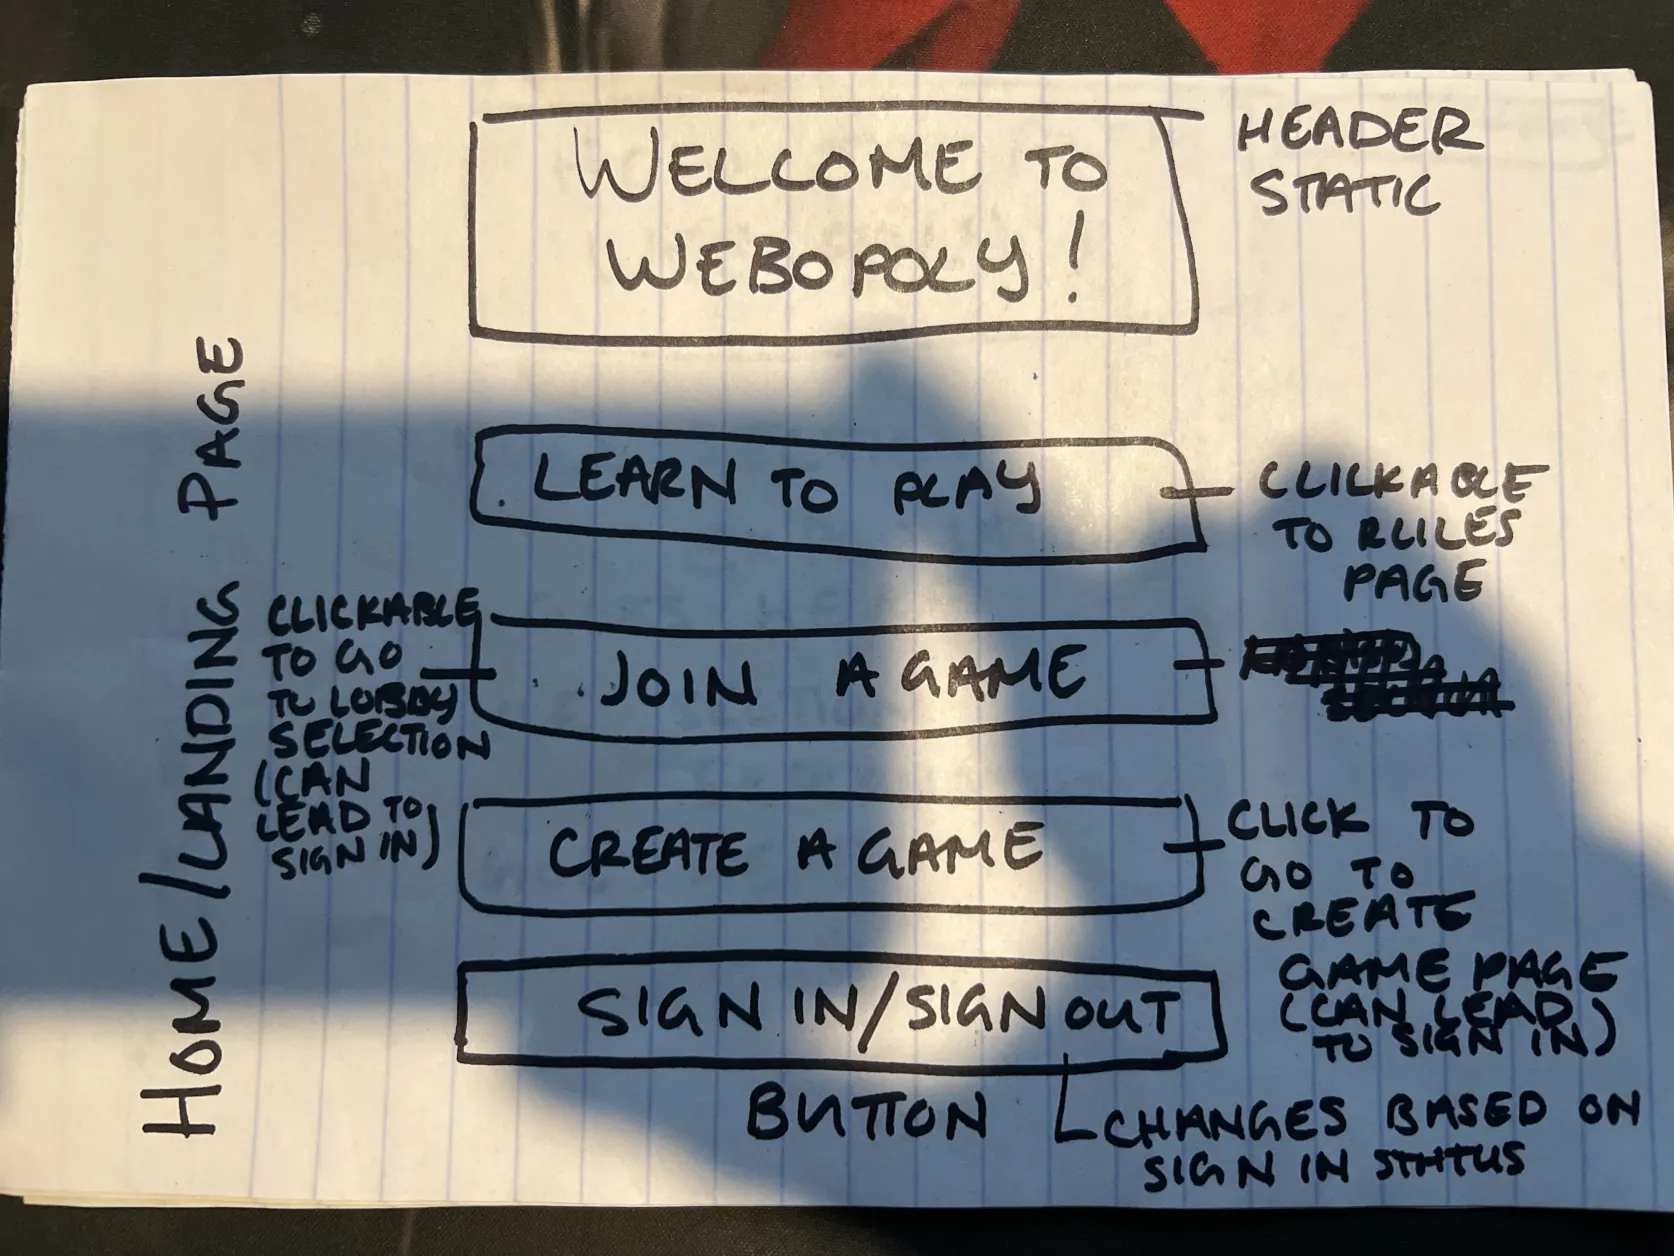 WELCOME TO
WEBOPOLY!
HEADER
STATIC
HOME/LANDING PAGE
LEARN TO PLAY
CLICKABLE
TO RULES
PAGE
CLICKABLE
TO GO
TO LOBBY
SELECTION
(CAN
LEAD TO
SIGN IN)
JOIN A GAME
CREATE A GAME
CLICK TO
GO TO
CREATE
GAME PAGE
(CAN LEAD
TO SIGN IN)
SIGN IN/SIGN OUT
BUTTON
CHANGES BASED ON
SIGN IN STATUS